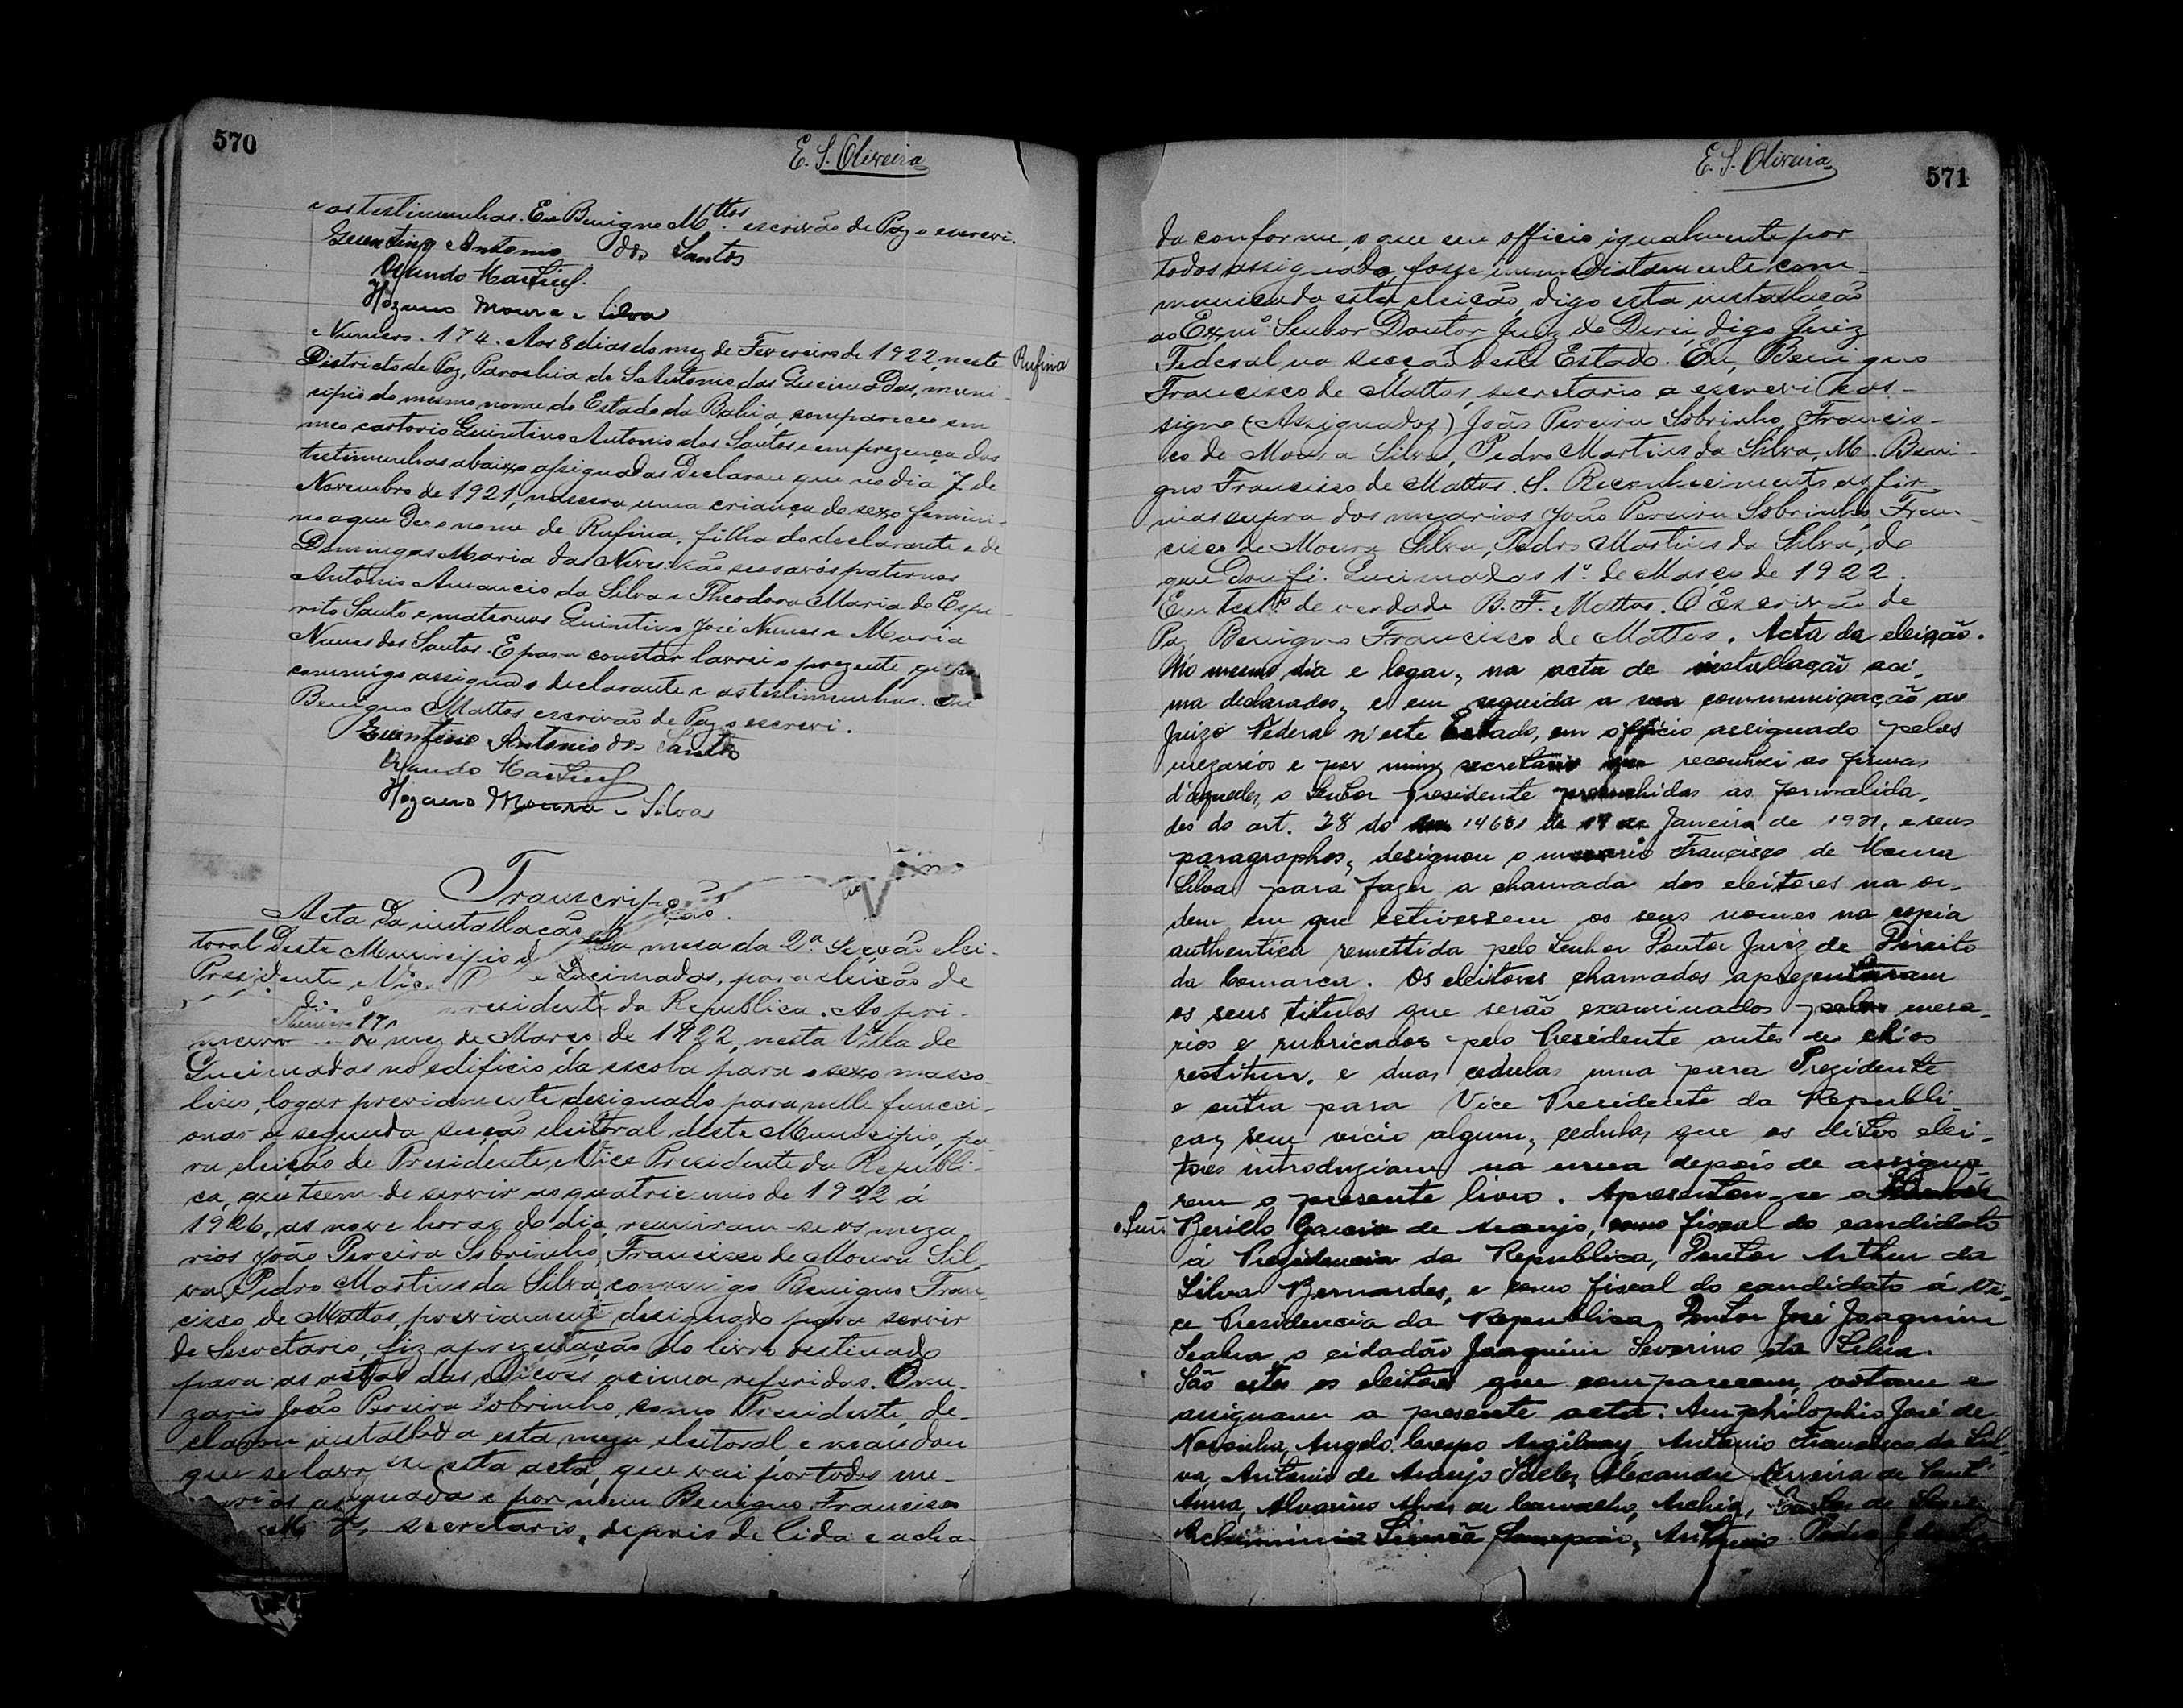 570
E. S. Oliveira
e as testimunhas. Eu Benigno Mttos. escrivão de Paz o escrevi.
Quintino Antonio dos Santos
Hozano Moura e Silva
Numero. 174. Aos 8 dias do mez de Fevereiro de 1922, neste
Rufina
Districto de Paz, Parochia de S. Antonio das Queimadas, muni-
cipio do mesmo nome do Estado da Bahia, compareceu em
meo cartorio Quintino Antonio dos Santos e em prezença das
testimunhas abaixo assignadas Declarou que no dia 7 de
Novembro de 1921, nascera uma criança do sexo femini-
no a que Deo o nome de Rufina, filha do declarante e de
Domingas Maria das Neves: são seus avós paternos
Antonio Amancio da Silva e Theodora Maria do Espi-
rito Santo e maternos Quintino José Nunes e Maria
Nunes dos Santos. E para constar lavrei o prezente que
commigo assigna o declarante e as testimunhas. Eu
Benigno Mattos escrivão de Paz o escrevi.
Quintino Antonio dos Santos
Hozano Moura e Silva
Transcripção.
Acta da installação da meza da 2ª Secção elei-
toral Deste Municipio de Queimadas, para eleição de
Presidente e Vice Presidente da Republica. Ao pri-
meiro do mez de Março de 1922, nesta Villa de
Queimadas no edificio da escola para o sexo mascu-
lino, logar previamente designado para nelle funcci-
onar a segunda secção eleitoral deste Municipio, pa-
ra eleição de Presidente e Vice Presidente da Republi-
ca, que teem de servir no quatriennio de 1922 á
1926, as nove horas do dia, reuniram-se os meza-
rios João Pereira Sobrinho, Francisco de Moura Sil-
va, Pedro Martins da Silva, commigo Benigno Fran-
cisco de Mattos, previamente designado para servir
de Secretario, fiz aprezentação do livro destinado
para as actas das eleições acima referidas. O me-
zario João Pereira Sobrinho, como Presidente, de-
clarou installada esta meza eleitoral, e mandou
que se lavrasse esta acta, que vai por todos me-
zarios assignada e por mim Benigno Francisco
secretario, depois de lida e acha-
571
E. S. Oliveira
da conforme, e que em officio igualmente por
todos assignado, fosse immediatamente com-
municada esta eleição, digo esta installação
ao Exmº Senhor Doutor Juiz de Direi, digo Juiz
Federal na secção deste Estado. Eu, Benigno
Francisco de Mattos, secretario a escrevi e as-
signo (Assignados) João Pereira Sobrinho, Francis-
co de Moura Silva, Pedro Martins da Silva, M. Beni-
gno Francisco de Mattos. S. Reconhecimento as fir-
mas supra dos mezarios João Pereira Sobrinho, Fran-
cisco de Moura Silva, Pedro Martins da Silva, do
que dou fé. Queimadas 1º de Março de 1922.
Em testº de verdade B. F. Mattos. O Escrivão de
Paz Benigno Francisco de Mattos. Acta da eleição.
No mesmo dia e logar, na acta de installação aci-
ma declarados, e em seguida a sua communicação ao
Juizo Federal n'este Estado, em officio assignado pelos
mezarios e por mim secretario que reconheci as firmas
d'aquelles, o Senhor Presidente prehenchidas as formalida-
des do art. 28 do 14631 de 19 de Janeiro de 1921, e seus
paragraphos, designou o mesario Francisco de Moura
Silva para fazer a chamada dos eleitores na or-
dem em que estivessem os seus nomes na copia
authentica remettida pelo Senhor Doutor Juiz de Direito
da Comarca. Os eleitores chamados aprezentaram
os seus titulos que serão examinados pelos mesa-
rios e rubricados pelo Presidente antes de elhos
restituir, e duas cedulas uma para Prezidente
e outra para Vice Presidente da Republi-
ca, sem vicio algum, cedulas que os ditos elei-
tores introduziam na urna depois de assigna-
rem o presente livro. Apresentou-se o
Berillo Garcia de Araujo, como fiscal do candidato
á Prezidencia da Republica, Doutor Arthur da
Silva Bernardes, e como fiscal do candidato á Vi-
ce Presidencia da Republica, Doutor José Joaquim
Seabra, o cidadão Joaquim Severino da Silva.
São estes os eleitores que compareceram, votam e
assignam a presente acta: Amphilophio José de
Noronha, Angelo Crespo Antonio Francisco da Sil-
va, Antonio de Araujo Salles, Alexandre Ferreira de Sant'
Anna, Alvarino Alves de Carvalho,
Sampaio, Antonio Pedro